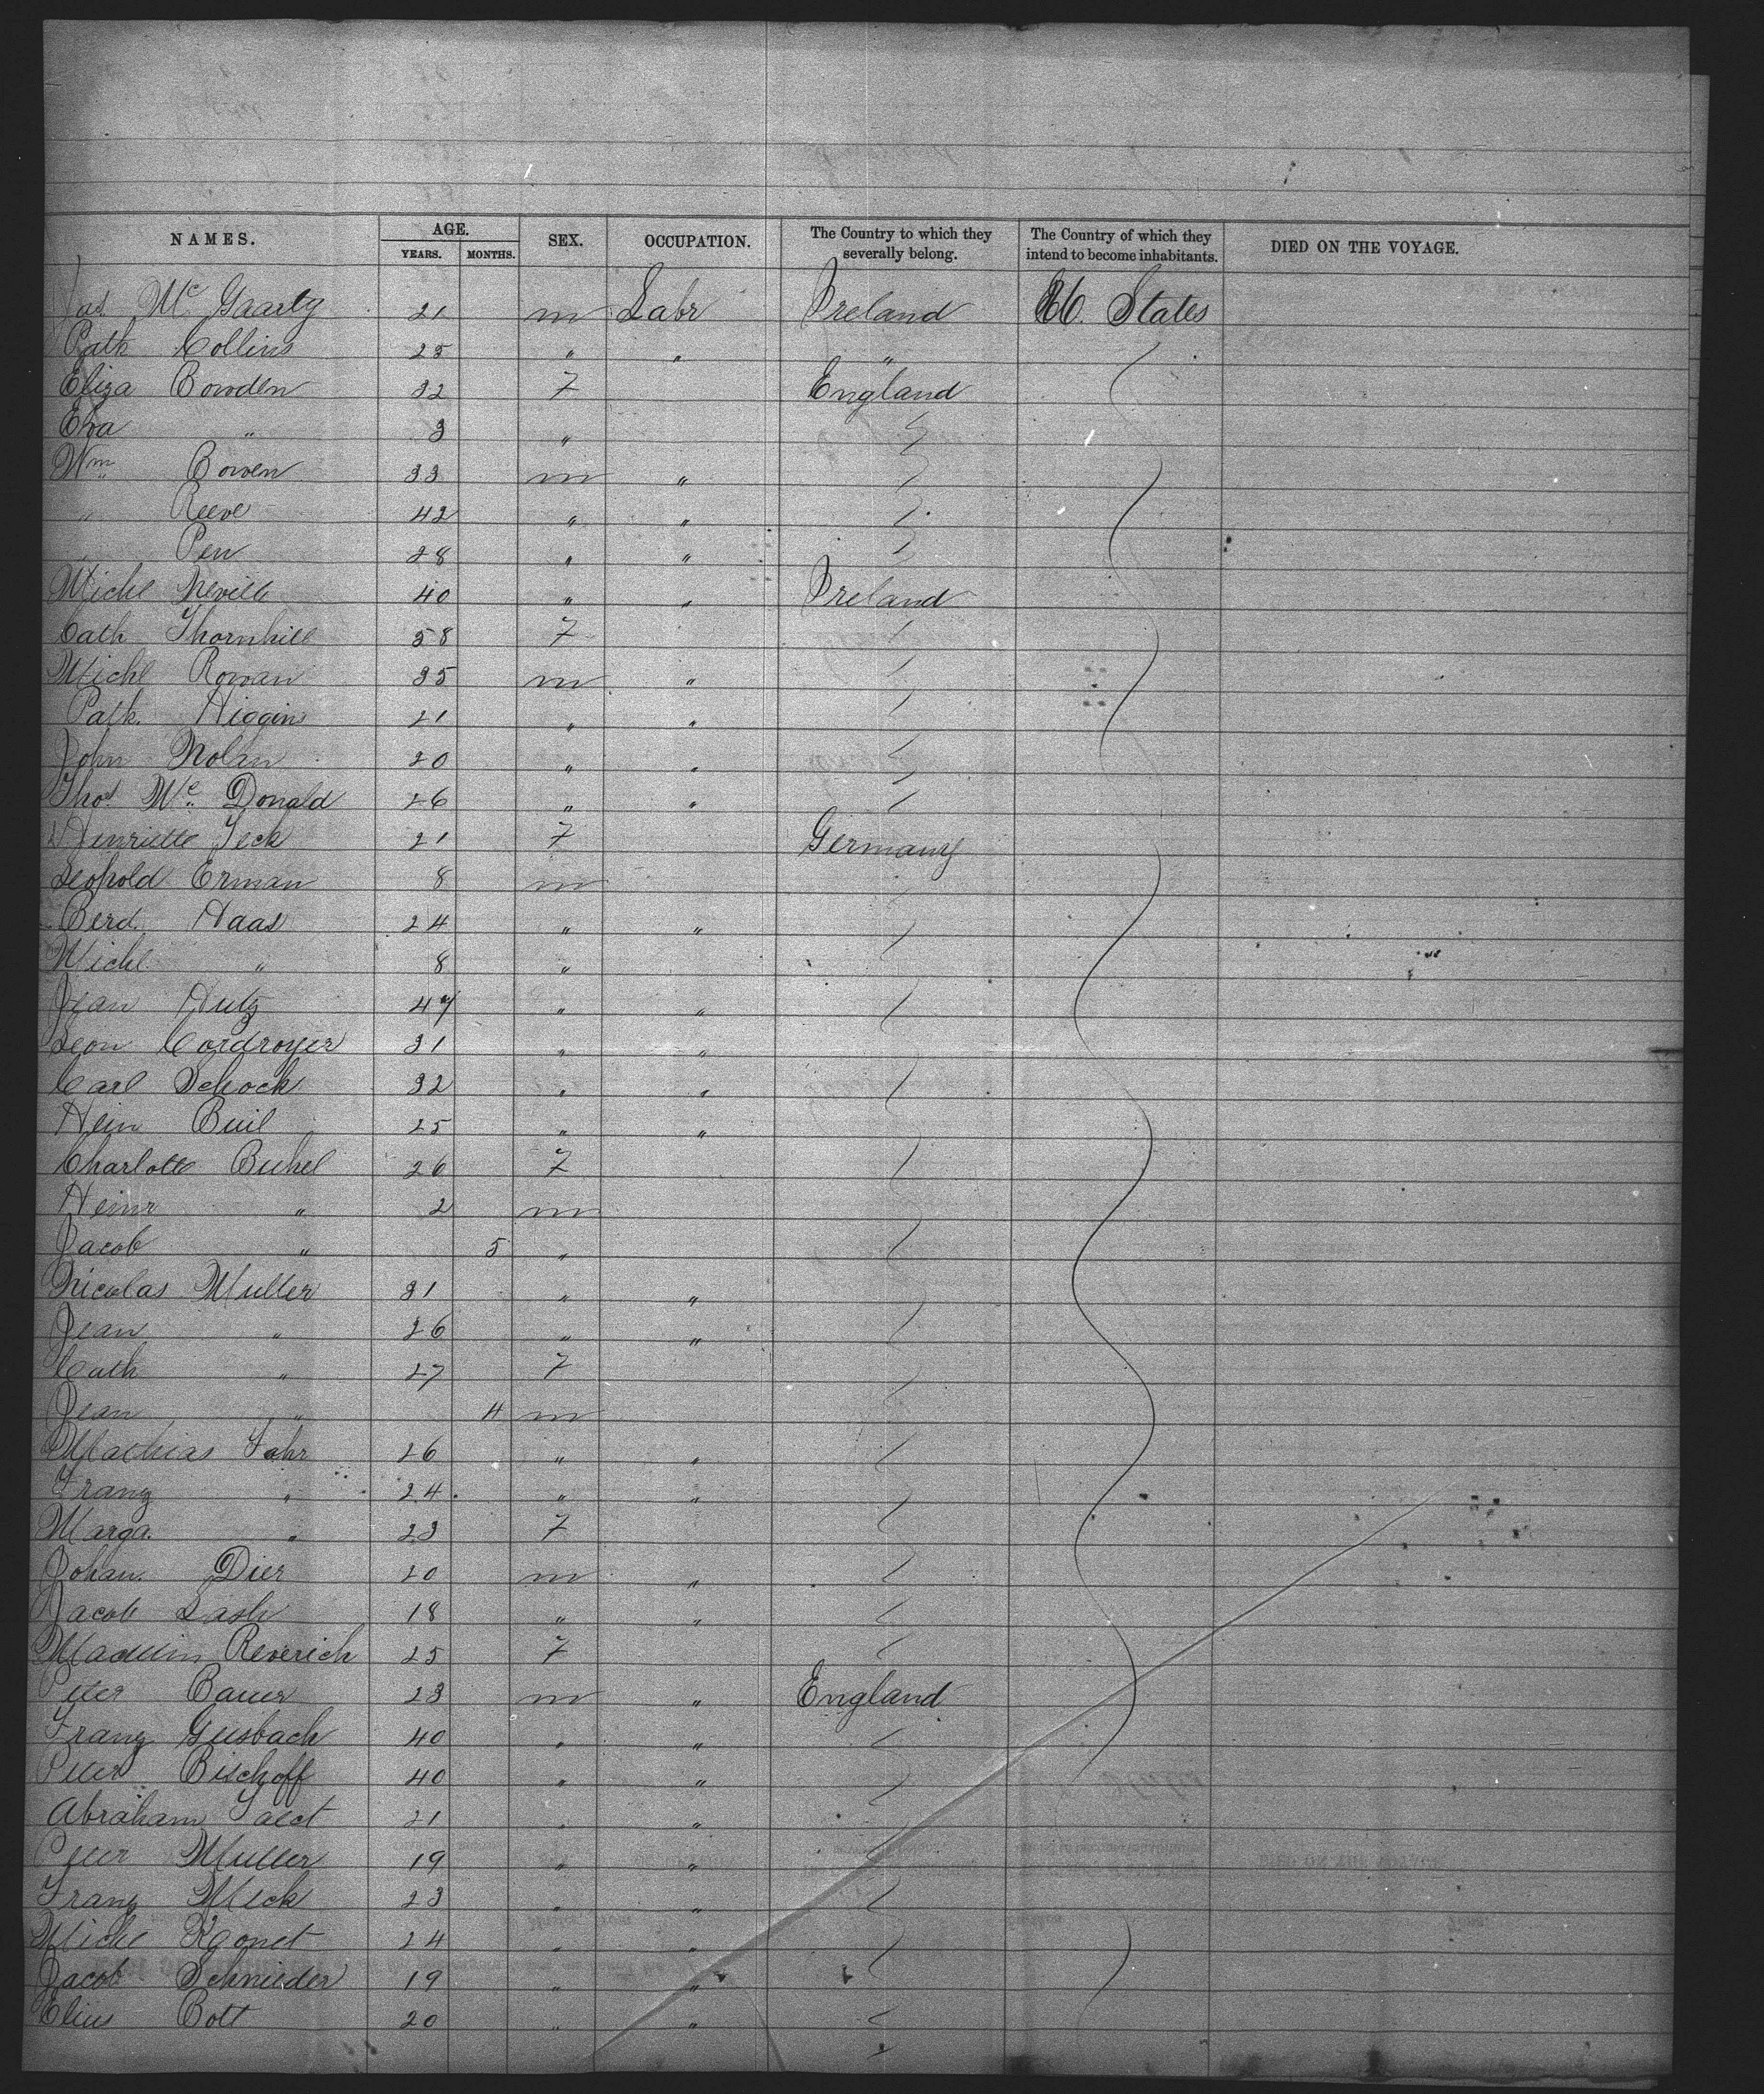 NAMES. AGE. YEARS. MONTHS. SEX. OCCUPATION. The Country to which they severally belong. The Country of which they intend to become inhabitants. DIED ON THE VOYAGE.
Jas Mc Gaarty 21 m Labr Ireland U. States
Patk Collins 25 " " "
Eliza Bowden 32 F England
Eva " 3 "
Wm Bowen 33 m "
" Reeve 42 " "
" Pen 28 " "
Michl Neville 40 " " Ireland
Cath Thornhill 58 F
Michl Rowan 35 m "
Patk. Higgins 21 " "
John Nolan 20 " "
Thos Mc Donald 26 " "
Henriette Teck 21 F Germany
Leopold Erman 8 m
Berd. Haas 24 " "
Michl " 8 "
Jean Hutz 47 " "
Leon Cordroyer 31 " "
Carl Schock 32 " "
Hein Buil 25 " "
Charlotte Buhel 26 F
Heinr " 2 m
Jacob " 5 "
Nicolas Muller 31 " "
Jean " 26 " "
Cath " 27 F
Jean " 4 m
Mathias Fahr 26 " "
Franz " 24 " "
Marga. " 23 F
Johan. Dier 20 m "
Jacob Lash 18 " "
Reverich 25 F
Peter Bauer 23 m " England
Franz Gusbach 40 " "
Peter Bischoff 40 " "
Abraham 21 " "
Peter Muller 19 " "
Franz Meck 23 " "
Michl 24 " "
Jacob Schnieder 19 " "
Elius Bott 20 " "